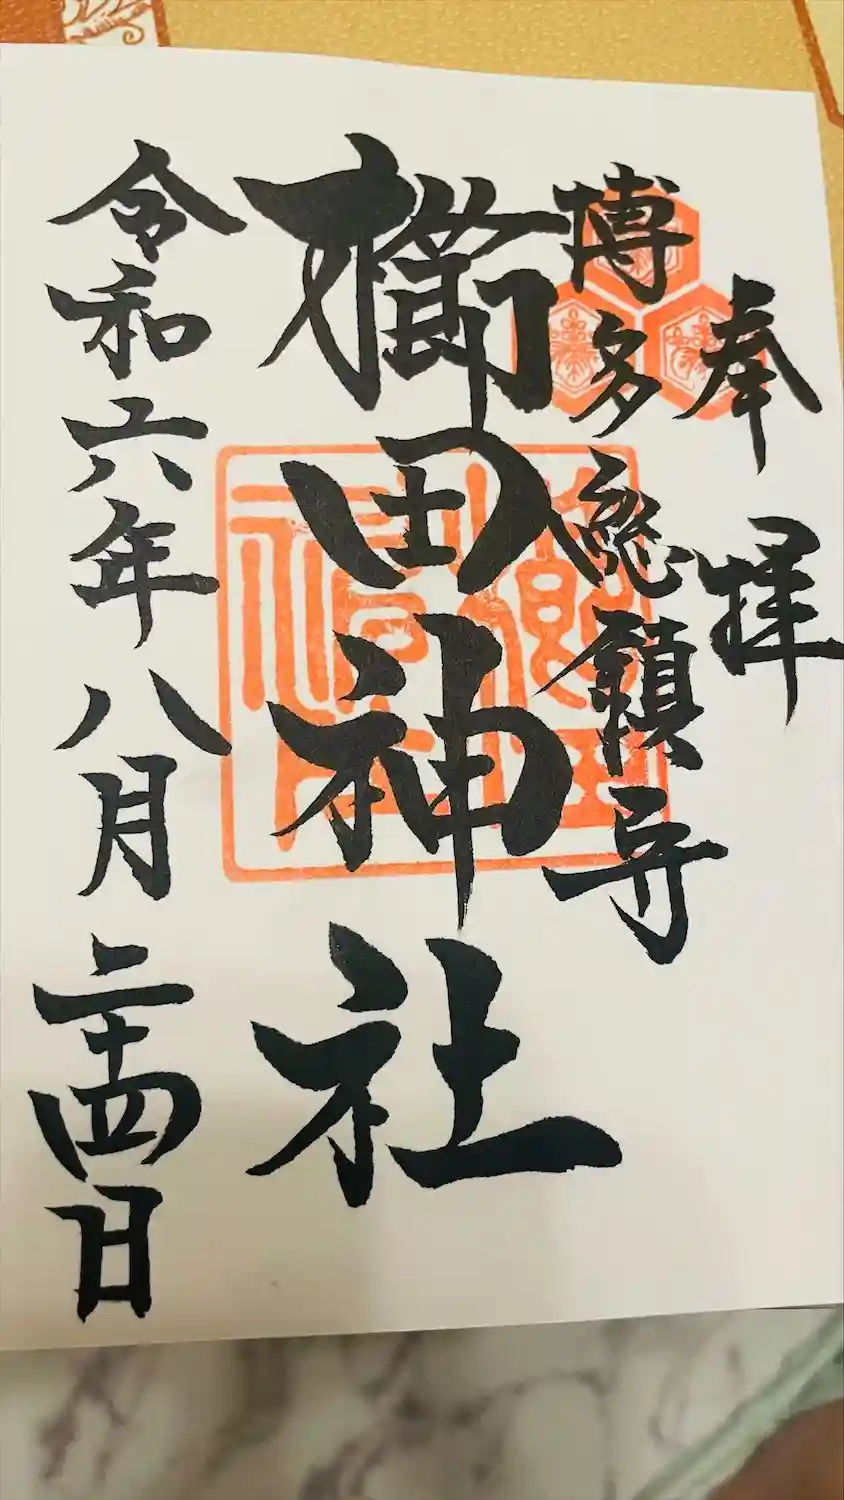 奉拝
博多総鎮守
櫛田神社
令和六年八月二十四日